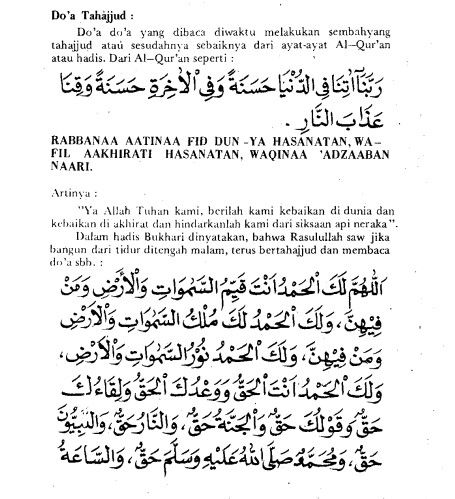 Do'a Tahajjud :
Do'a do'a yang dibaca diwaktu melakukan sembahyang
tahajjud atau sesudahnya sebaiknya dari ayat-ayat Al-Qur'an
atau hadis. Dari Al-Qur'an seperti :
رَبَّنَآ اٰتِنَا فِى الدُّنْيَا حَسَنَةً وَفِى الْاٰخِرَةِ حَسَنَةً وَقِنَا
عَذَابَ النَّارِ .
RABBANAA AATINAA FID DUN-YA HASANATAN, WA-
FIL AAKHIRATI HASANATAN, WAQINAA 'ADZAABAN
NAARI.
Artinya :
"Ya Allah Tuhan kami, berilah kami kebaikan di dunia dan
kebaikan di akhirat dan hindarkanlah kami dari siksaan api neraka".
Dalam hadis Bukhari dinyatakan, bahwa Rasulullah saw jika
bangun dari tidur ditengah malam, terus bertahajjud dan membaca
do'a sbb. :
اَللّٰهُمَّ لَكَ الْحَمْدُ اَنْتَ قَيِّمُ السَّمٰوَاتِ وَالْاَرْضِ وَمَنْ
فِيْهِنَّ، وَلَكَ الْحَمْدُ لَكَ مُلْكُ السَّمٰوَاتِ وَالْاَرْضِ
وَمَنْ فِيْهِنَّ، وَلَكَ الْحَمْدُ نُوْرُ السَّمٰوَاتِ وَالْاَرْضِ،
وَلَكَ الْحَمْدُ اَنْتَ الْحَقُّ وَوَعْدُكَ الْحَقُّ وَلِقَاءُكَ
حَقٌّ وَقَوْلُكَ حَقٌّ وَالْجَنَّةُ حَقٌّ، وَالنَّارُ حَقٌّ، وَالنَّبِيُّوْنَ
حَقٌّ، وَمُحَمَّدٌ صَلَّى اللهُ عَلَيْهِ وَسَلَّمَ حَقٌّ، وَالسَّاعَةُ